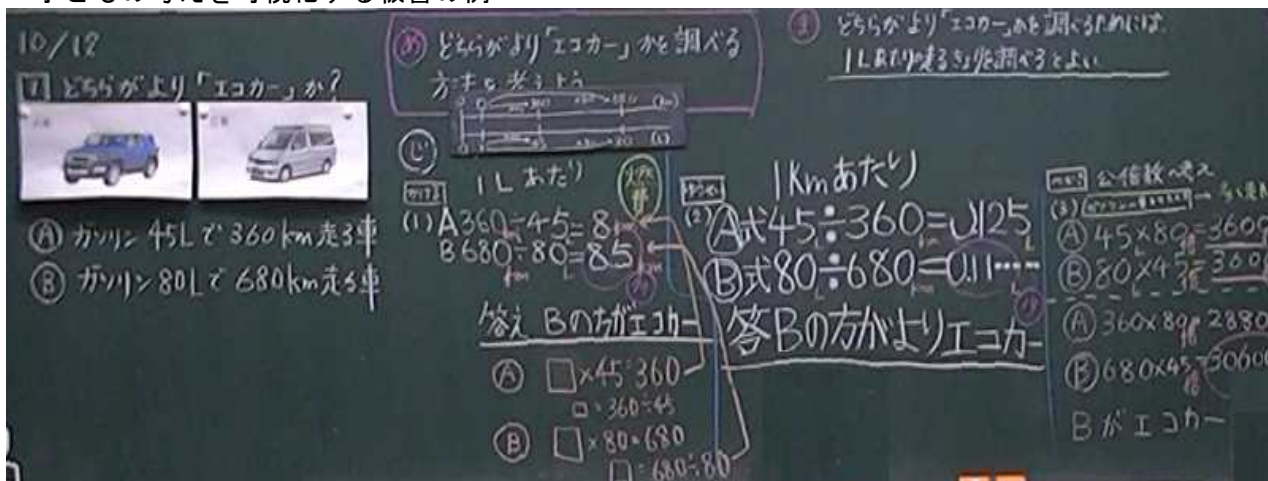 10/12
1 どちらがより「エコカー」か?
Ⓐ ガソリン45Lで360km走る車
Ⓑ ガソリン80Lで680km走る車
め どちらがより「エコカー」かを調べる
方法を考えよう
じ
1Lあたり
(1) A 360÷45=8
B 680÷80=8.5
答え Bの方がエコカー
Ⓐ □×45=360
□=360÷45
Ⓑ □×80=680
□=680÷80
1Kmあたり
(2) Ⓐ式45÷360=0.125
Ⓑ式80÷680=0.11……
答Bの方がよりエコカー
ま どちらがより「エコカー」かを調べるためには、
1Lあたりの走るきょりを調べるとよい
公倍数の考え
(3)
Ⓐ 45×80=3600
Ⓑ 80×45=360
Ⓐ 360×80=2880
Ⓑ 680×45=30600
Bがエコカー